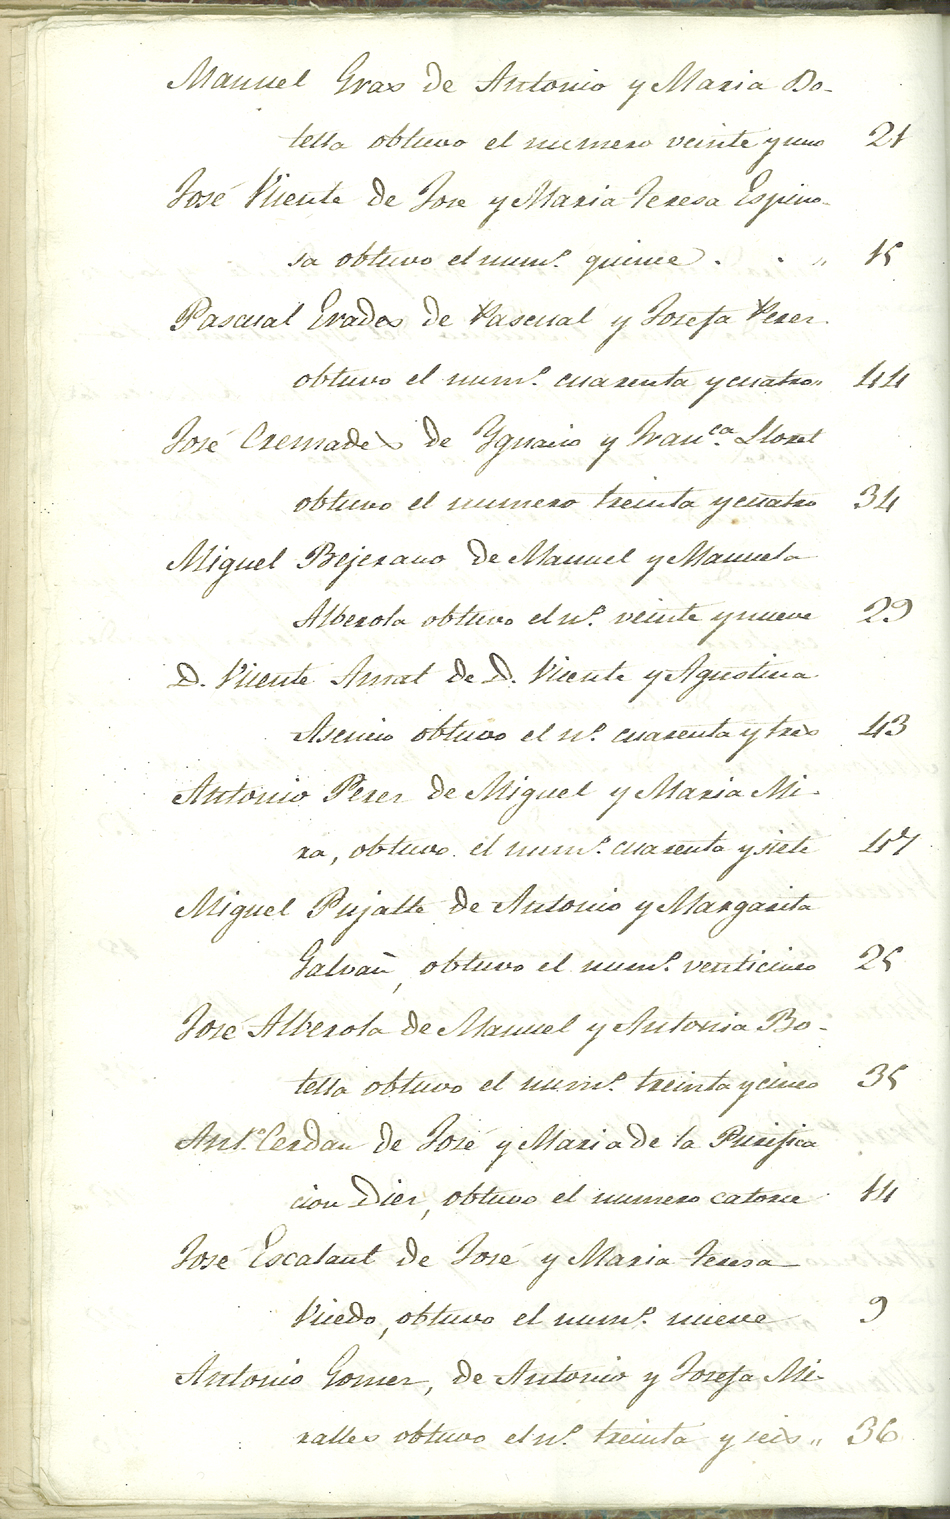 Manuel Gras de Antonio y Maria Bo-
tella obtuvo el numero veinte y uno 21
José Vicente de Jose y Maria Teresa Espino-
sa obtuvo el num.º quince . . " 15
Pascual Erades de Pascual y Josefa Perez.
obtuvo el num.º cuarenta y cuatro " 44
José Cremades de Ygnacio y Fran.ca Lloret
obtuvo el numero treinta y cuatro 34
Miguel Bejerano de Manuel y Manuela
Alberola obtuvo el n.º veinte y nueve 29
D. Vicente Amat de D. Vicente y Agustina
Asencio obtuvo el n.º cuarenta y tres 43
Antonio Perez de Miguel y Maria Mi-
ra, obtuvo el num.º cuarenta y siete 47
Miguel Pujalte de Antonio y Margarita
Galvañ, obtuvo el num.º venticinco 25
José Alberola de Manuel y Antonia Bo-
tella obtuvo el num.º treinta y cinco 35
Ant.º Cerdan de José y Maria de la Purifica
cion Diez, obtuvo el numero catorce 14
José Escalant de José y Maria Teresa
obtuvo el num.º nueve 9
Antonio Gomez, de Antonio y Josefa Mi-
ralles obtuvo el n.º treinta y seis " 36